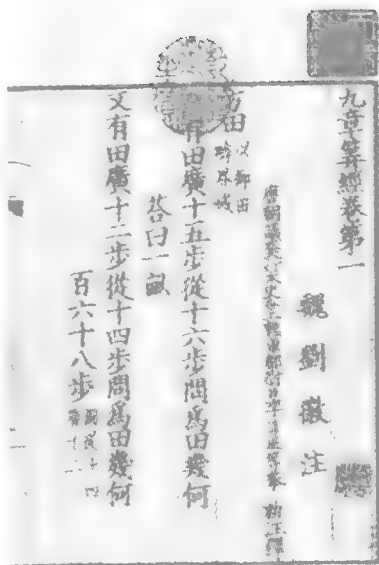 九章算經卷第一
魏劉徽注
唐朝議大夫行太史令上輕車都尉臣李淳風等奉勅注釋
方田以御田疇界域
今有田廣十五步從十六步問爲田幾何
荅曰一畝
又有田廣十二步從十四步問爲田幾何
百六十八步